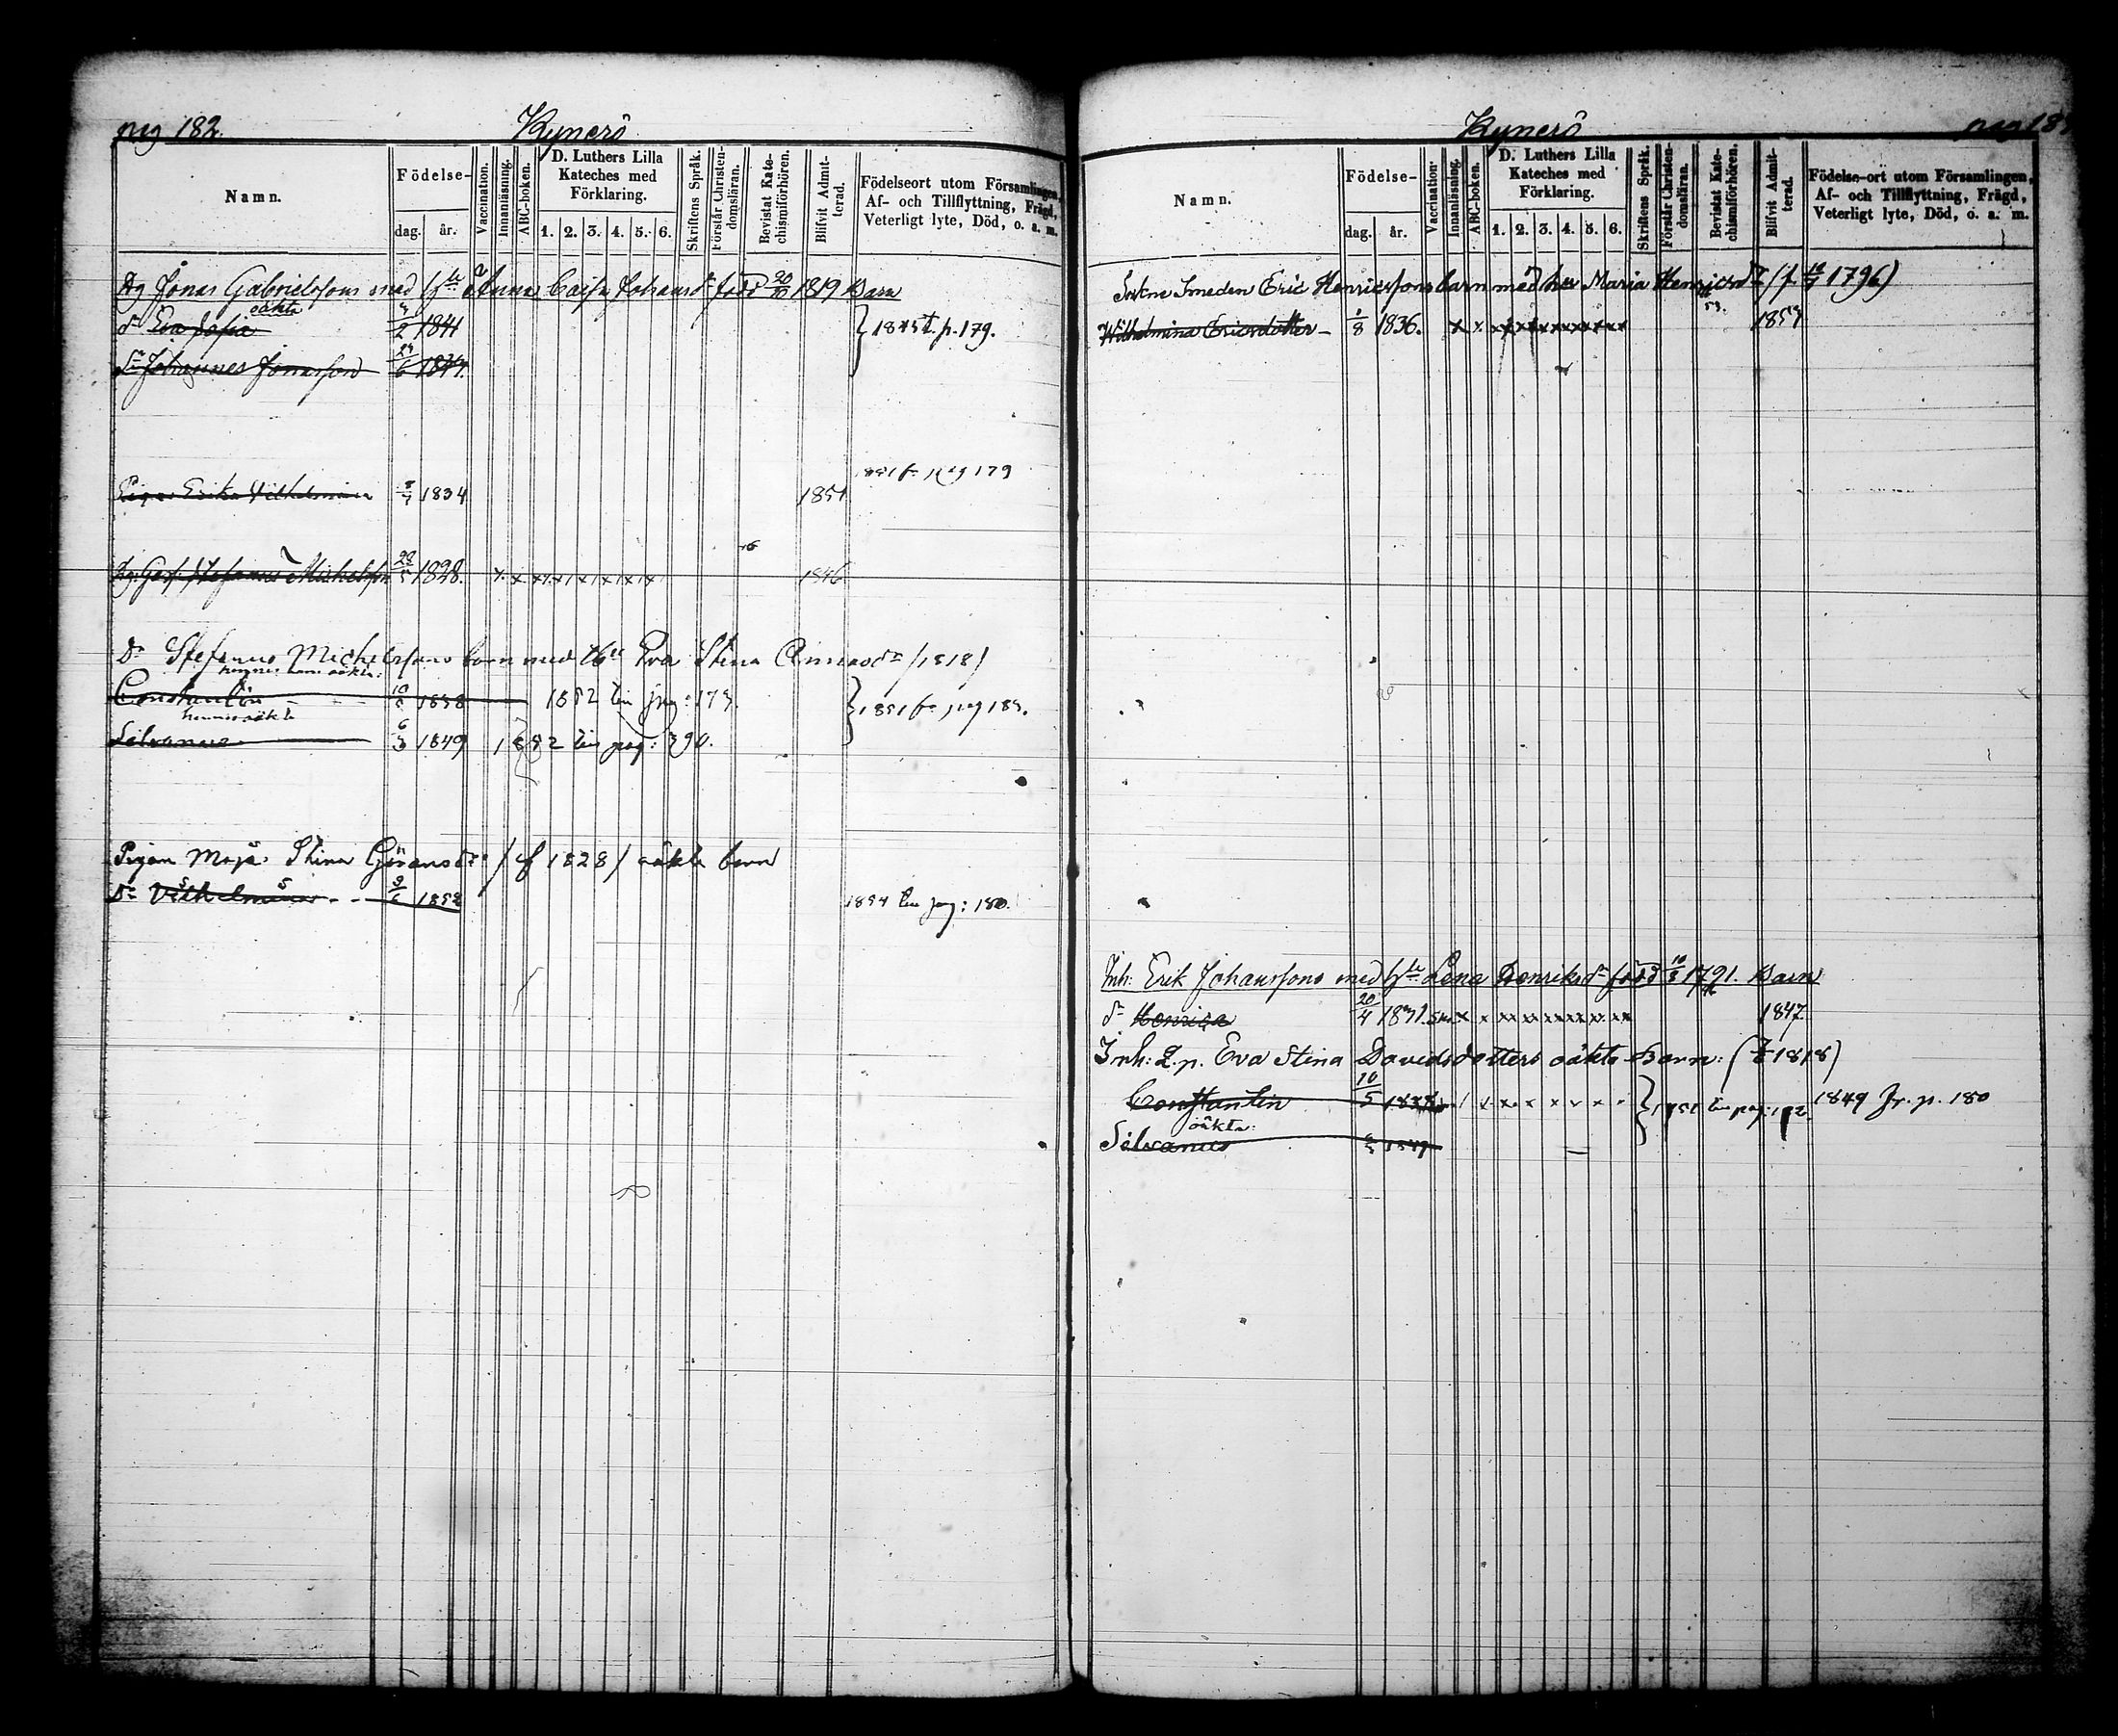 pag 182.
Kynerö
Namn.
Födelse-
dag.
år.
Vaccination.
Innanläsning.
ABC-boken.
D. Luthers Lilla
Kateches med
Förklaring.
1. 2. 3. 4. 5. 6.
Skriftens Språk.
Förstår Christen-
domsläran.
Bevistat Kate-
chismiförhören.
Blifvit Admit-
terad.
Födelseort utom Församlingen,
Af- och Tillflyttning, Frägd,
Veterligt lyte, Död, o. a. m.
Jonas Gabrielssons med Anna Caisa Johansdr född 20/10 1819 Barn
oäkta
dr Eva Sofia 2 1841
} 1845 t. p. 179.
Sn Johannes Jonasson 6 1844.
fr pag 179
Pigan Erika Vilhelmina 1834 1851
Stefanus Michelsson 28/5 1828. x x x x x x x x 1846
Dn Stefanus Michelssons barn med Eva Stina /1818/
hennes oäkta:
Constantin 10/5 1838 1852 till pag: 173.
} 1851 fr pag 183.
hennes oäkta
Silvanus 6/3 1849 1852 till pag: 390.
Pigan Maja Stina Göransdr /f 1828/ oäkta barn
Dr Vilhelmina - - 9/6 1852 1854 till pag: 180.
pag 18
Kynerö
Namn.
Födelse-
dag.
år.
Vaccination.
Innanläsning.
ABC-boken.
D. Luthers Lilla
Kateches med
Förklaring.
1. 2. 3. 4. 5. 6.
Skriftens Språk.
Förstår Christen-
domsläran.
Bevistat Kate-
chismiförhören.
Blifvit Admit-
terad.
Födelse-ort utom Församlingen,
Af- och Tillflyttning, Frägd,
Veterligt lyte, Död, o. a. m.
Smeden Eric Henricssons barn med hu Maria Henricsdr (f. 1796)
53.
Wilhelmina Ericsdotter - 1/8 1836. x x x x x x x x 1853
Inh: Erik Johanssons med Lena Henriksdr född 10/3 1791. Barn
dr Henrica 20/4 1831. x x xx xx xx xx xx xx 1847
Inh: Q.p. Eva Stina Davidsdotters oäkta Barn: (1818)
Constantin 10/5 1838 x x x x x x x } till pag: 1849 Fr. p. 180
oäkta:
Silvanus 1849